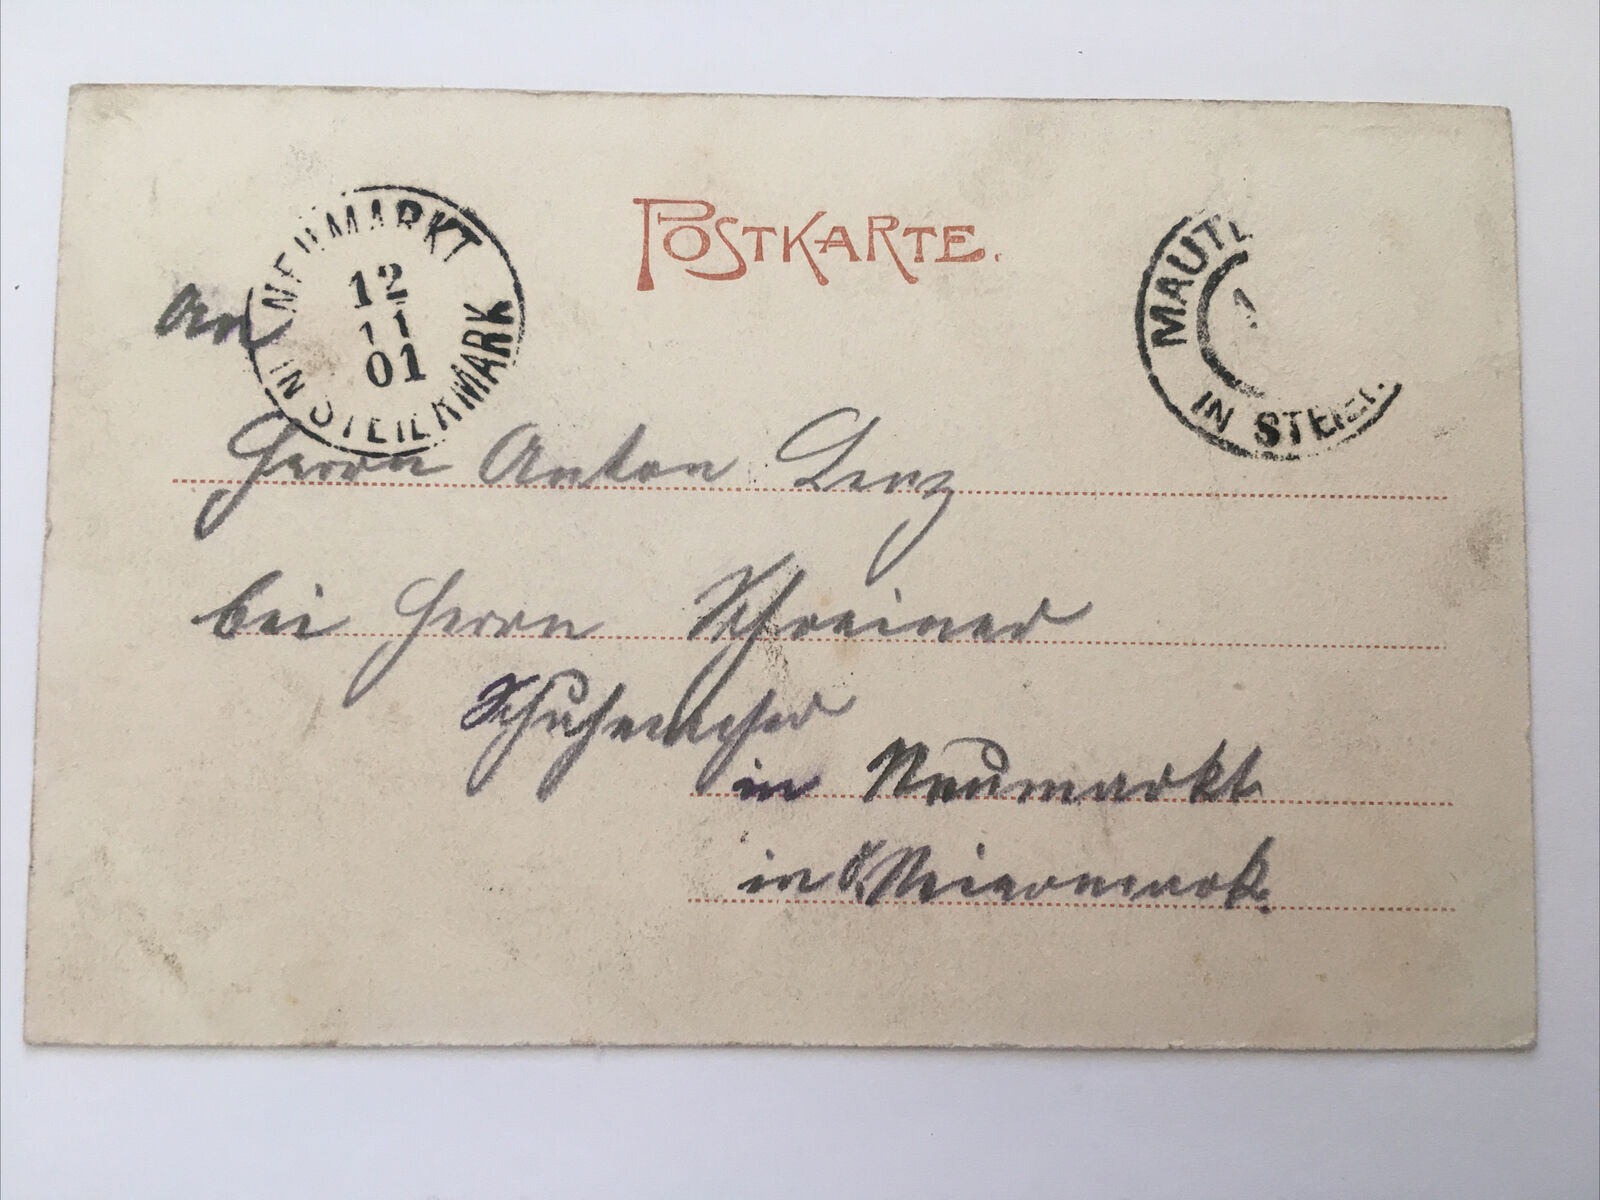 POSTKARTE.
NEUMARKT
12
11
01
IN STEIERMARK
MAUT
1
IN STEIE
An
Herrn Anton Lenz
bei Herrn Schreiner
Schuhmacher
in Neumarkt
in Steiermark.